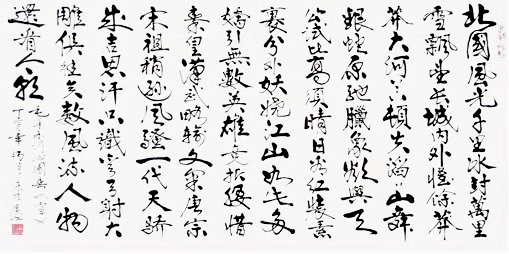 北國風光千里冰封萬里
雪飄望長城内外惟餘莽
莽大河上下頓失滔滔山舞
銀蛇原馳臘象欲與天
公試比高須晴日看紅裝素
裹分外妖嬈江山如此多
嬌引無數英雄竞折腰惜
秦皇漢武略輸文采唐宗
宋祖稍遜風騷一代天驕
成吉思汗只識彎弓射大
雕俱往矣數風流人物
還看今朝